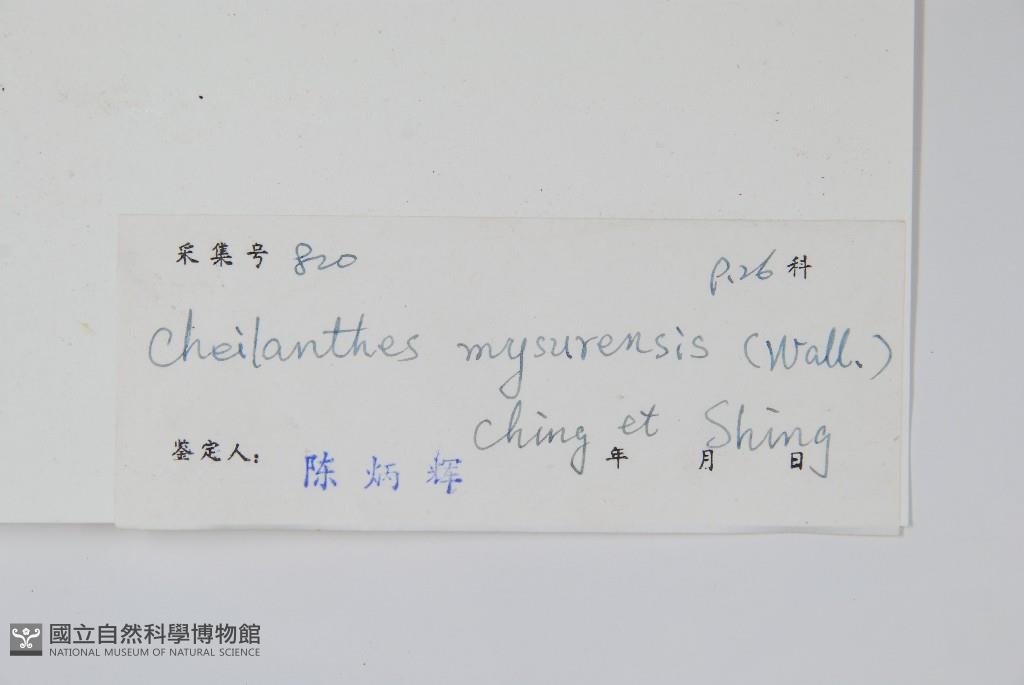 采集号 820 P.26 科
Cheilanthes mysurensis (Wall.)
Ching et Shing
鉴定人: 陈炳辉 年 月 日
國立自然科學博物館
NATIONAL MUSEUM OF NATURAL SCIENCE